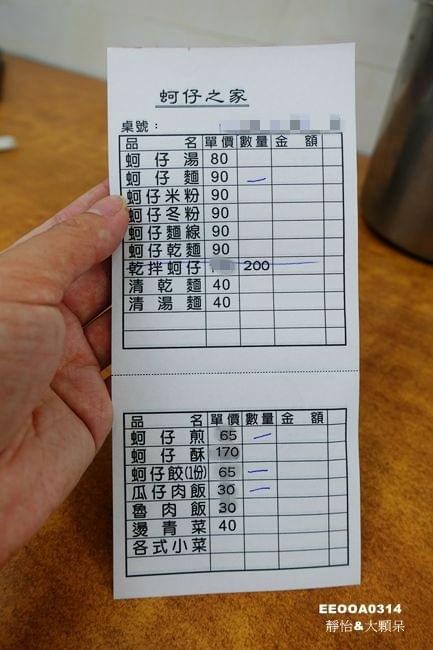 蚵仔之家
桌號：
品 名 單價 數量 金 額
蚵仔湯 80
蚵仔麵 90 一
蚵仔米粉 90
蚵仔冬粉 90
蚵仔麵線 90
蚵仔乾麵 90
乾拌蚵仔 200
清乾麵 40
清湯麵 40
品 名 單價 數量 金 額
蚵仔煎 65 一
蚵仔酥 170
蚵仔餃(1份) 65 一
瓜仔肉飯 30 一
魯肉飯 30
燙青菜 40
各式小菜
EEOOA0314
靜怡&大顆呆